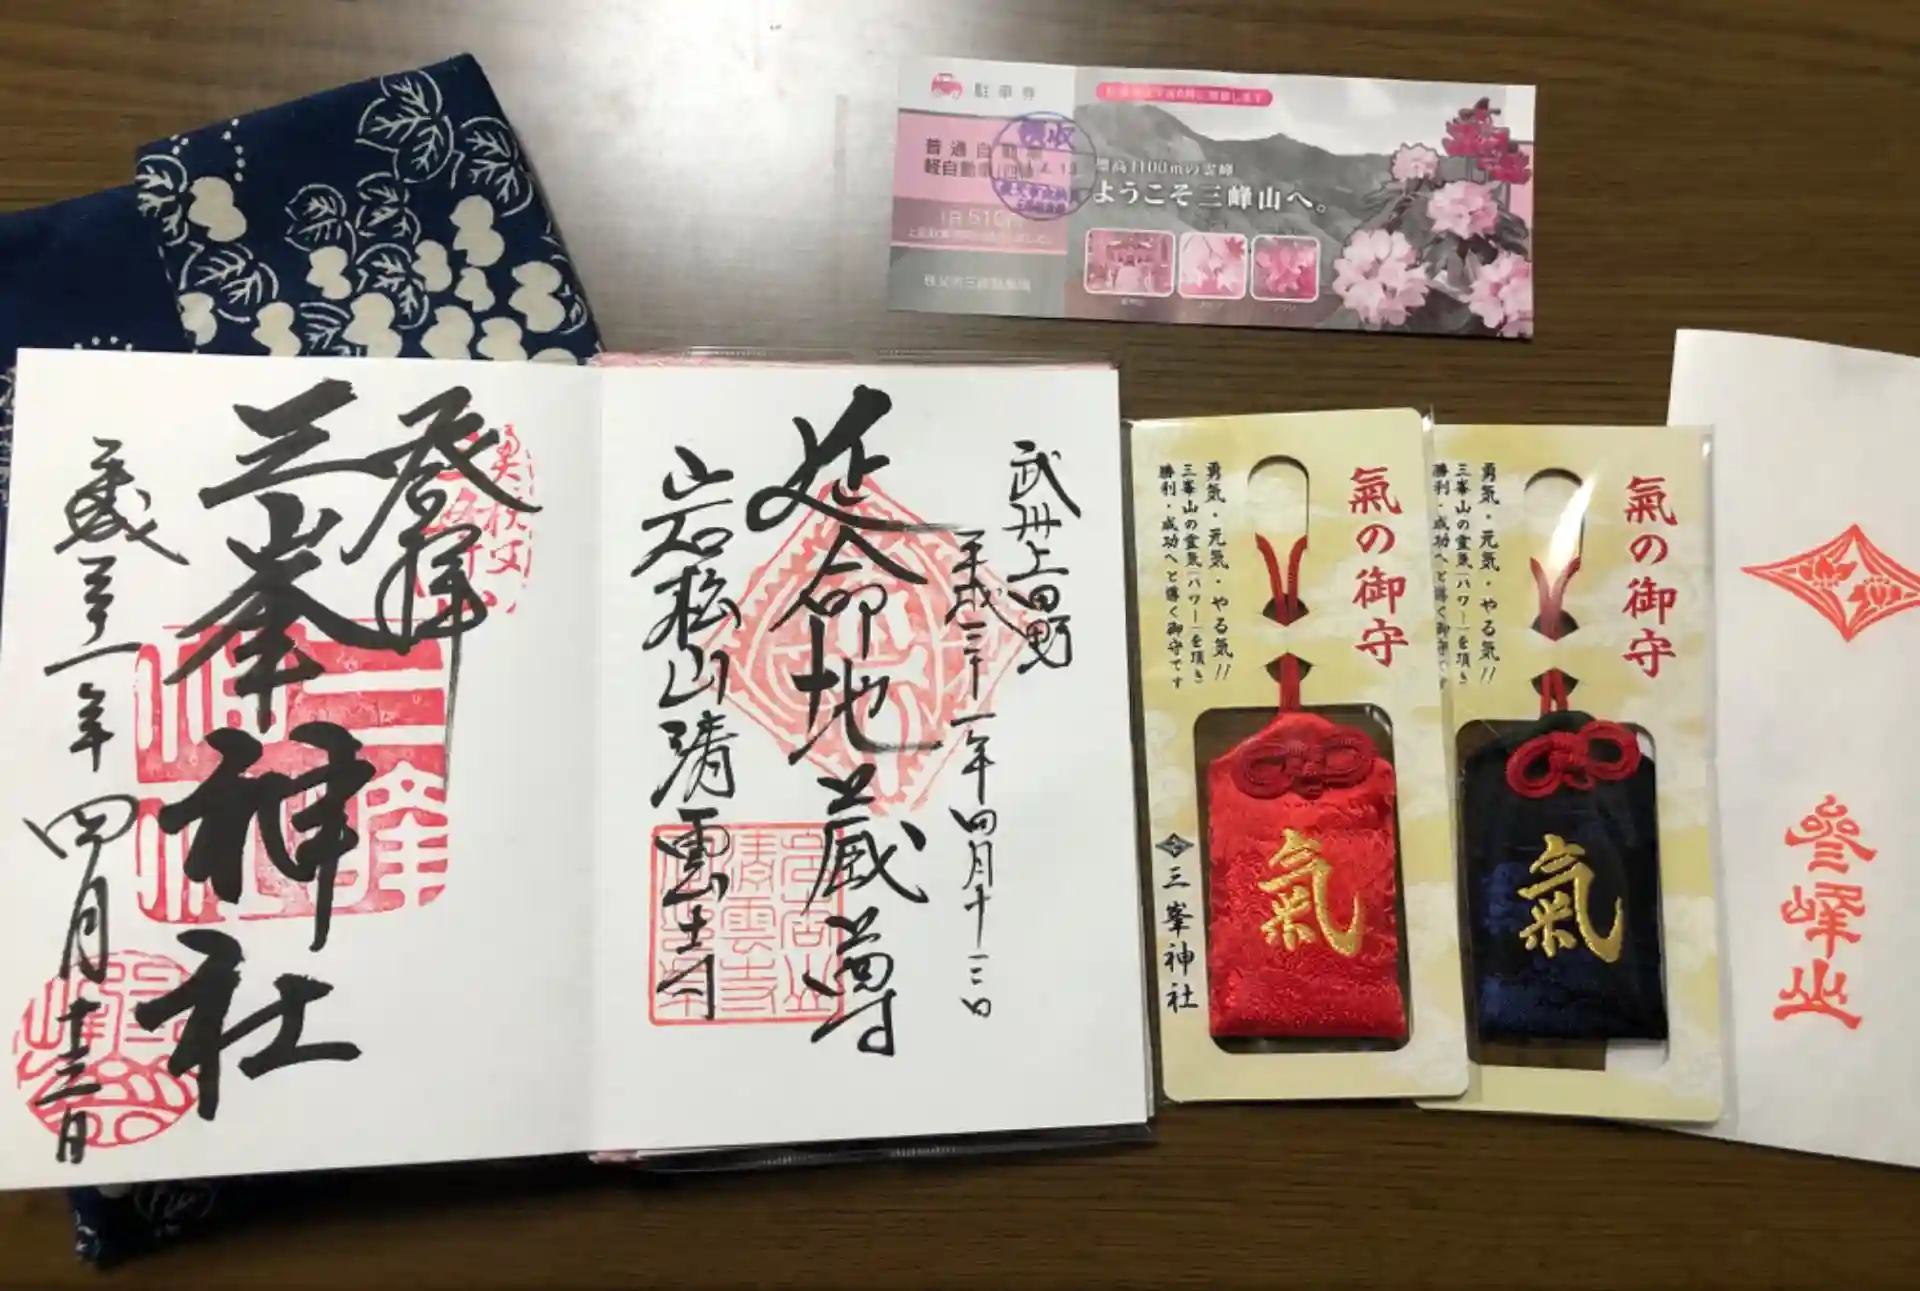 駐車券
領収
普通自動車
軽自動車
1日510円
秩父市三峰駐車場
標高1100mの霊峰
ようこそ三峰山へ。
登拝
三峯神社
平成三十一年四月十三日
奥秩父
武州上田野
平成三十一年四月十三日
延命地蔵尊
岩松山清雲寺
氣の御守
勇気・元気・やる気!!
三峯山の霊気(パワー)を頂き
勝利・成功へと導く御守です
氣
三峯神社
氣の御守
勇気・元気・やる気!!
三峯山の霊気(パワー)を頂き
勝利・成功へと導く御守です
氣
参峰山